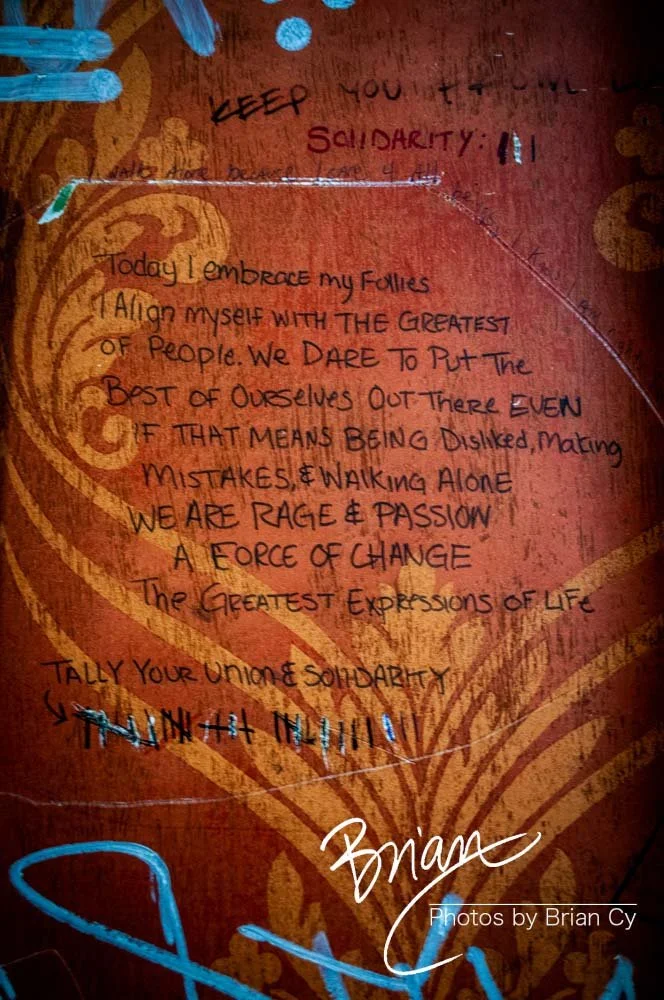 KEEP YOU
SOlIDARITY:
I walk Alone because I care 4 All
Today I embrace my Follies
I Align myself WITH THE GREATEST
OF People. We DARE To Put The
BEST OF OURselves OUT There EVEN
IF THAT MEANS BEING Disliked, Making
MISTAKES, & WAlking AlonE
WE ARE RAGE & PASSION
A FORCE OF CHANGE
The GREATEST ExpRessions OF LiFe
TALLY YOUR Union & SOlIDARITY
Brian
Photos by Brian Cy